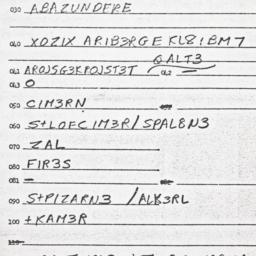 030 ABAZUNDEPE
040 XOZIX ARIB3RGE KL8IBM7
QALT3
041 AROJSG3KPOJST3T 042 —
043 O
050 CIM3RN
060 S+LOFCIM3R/SPAL8N3
070 ZAL
080 FIR3S
081 —
090 S+PIZARN3 /ALK3RL
100 +KAM3R
110